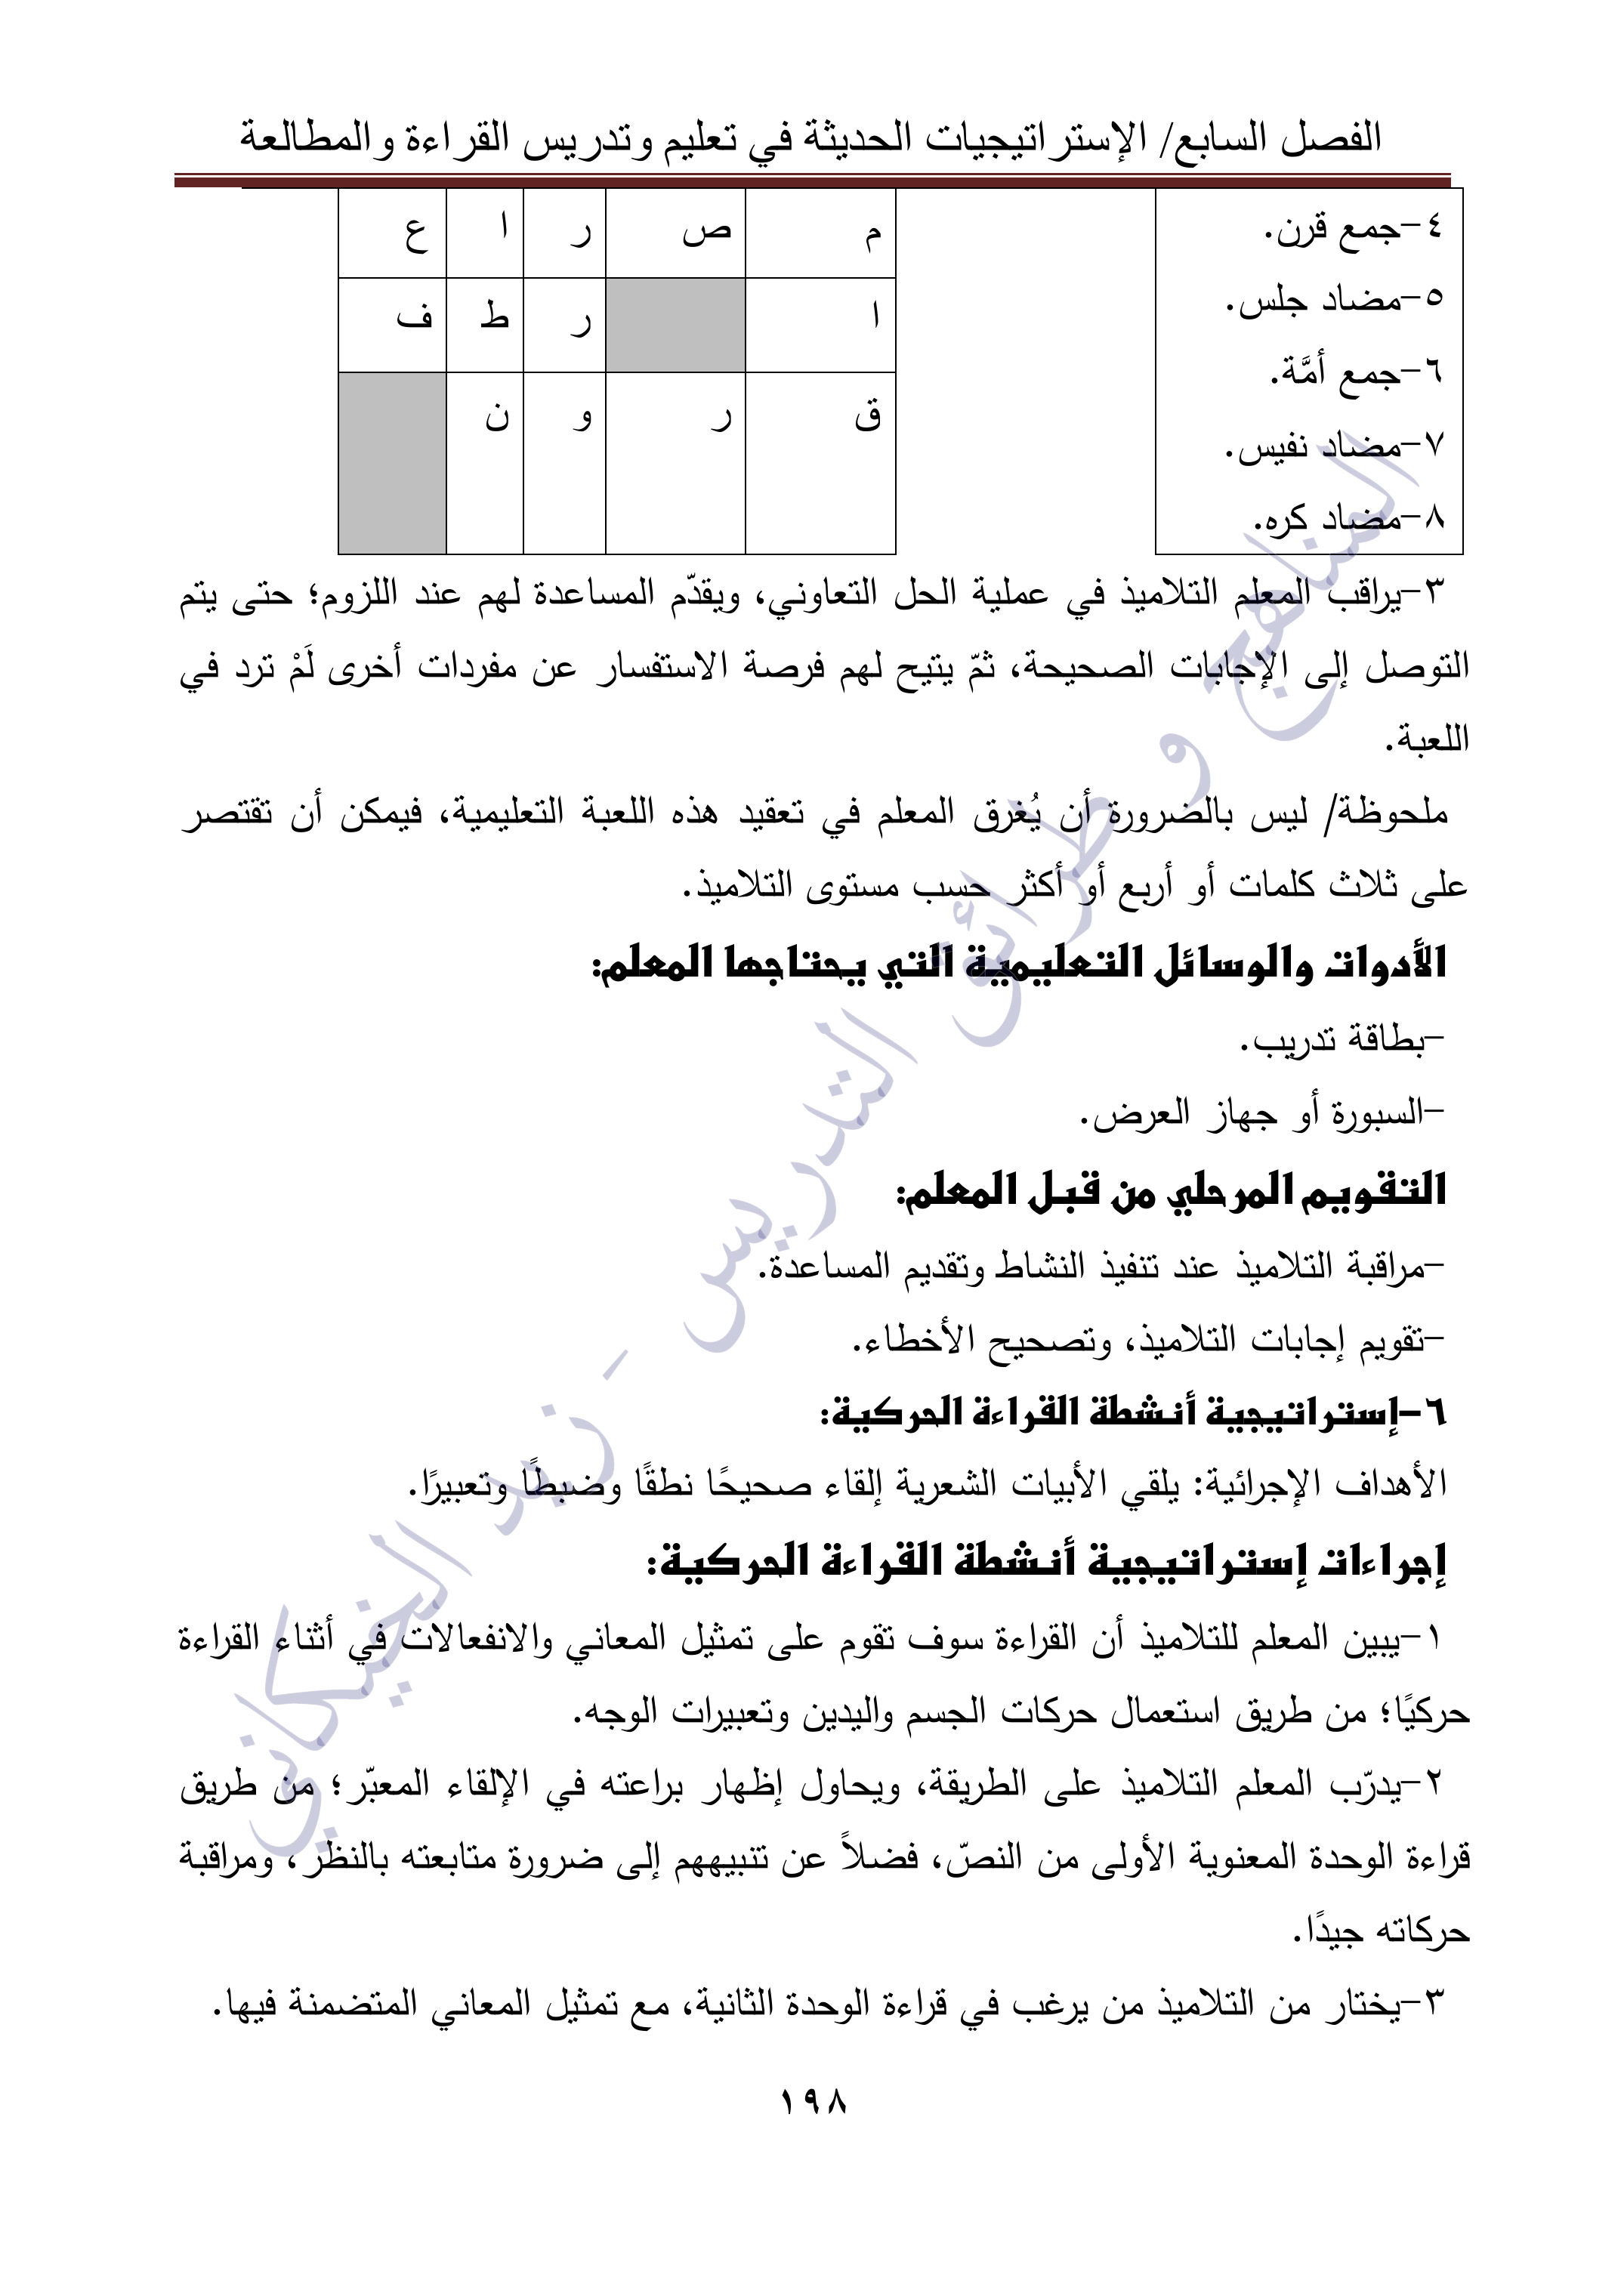 الفصل السابع/ الإستراتيجيات الحديثة في تعليم وتدريس القراءة والمطالعة
٤-جمع قرن.
٥-مضاد جلس.
٦-جمع أمَّة.
٧-مضاد نفيس.
٨-مضاد كره.
م ص ر ا ع
ا ر ط ف
ق ر و ن
٣-يراقب المعلم التلاميذ في عملية الحل التعاوني، ويقدّم المساعدة لهم عند اللزوم؛ حتى يتم
التوصل إلى الإجابات الصحيحة، ثمّ يتيح لهم فرصة الاستفسار عن مفردات أخرى لَمْ ترد في
اللعبة.
ملحوظة/ ليس بالضرورة أن يُغرق المعلم في تعقيد هذه اللعبة التعليمية، فيمكن أن تقتصر
على ثلاث كلمات أو أربع أو أكثر حسب مستوى التلاميذ.
الأدوات والوسائل التعليمية التي يحتاجها المعلم:
-بطاقة تدريب.
-السبورة أو جهاز العرض.
التقويم المرحلي من قبل المعلم:
-مراقبة التلاميذ عند تنفيذ النشاط وتقديم المساعدة.
-تقويم إجابات التلاميذ، وتصحيح الأخطاء.
٦-إستراتيجية أنشطة القراءة الحركية:
الأهداف الإجرائية: يلقي الأبيات الشعرية إلقاء صحيحًا نطقًا وضبطًا وتعبيرًا.
إجراءات إستراتيجية أنشطة القراءة الحركية:
١-يبين المعلم للتلاميذ أن القراءة سوف تقوم على تمثيل المعاني والانفعالات في أثناء القراءة
حركيًا؛ من طريق استعمال حركات الجسم واليدين وتعبيرات الوجه.
٢-يدرّب المعلم التلاميذ على الطريقة، ويحاول إظهار براعته في الإلقاء المعبّر؛ من طريق
قراءة الوحدة المعنوية الأولى من النصّ، فضلاً عن تنبيههم إلى ضرورة متابعته بالنظر، ومراقبة
حركاته جيدًا.
٣-يختار من التلاميذ من يرغب في قراءة الوحدة الثانية، مع تمثيل المعاني المتضمنة فيها.
١٩٨
المناهج و طرائق التدريس - زيد الخيكاني